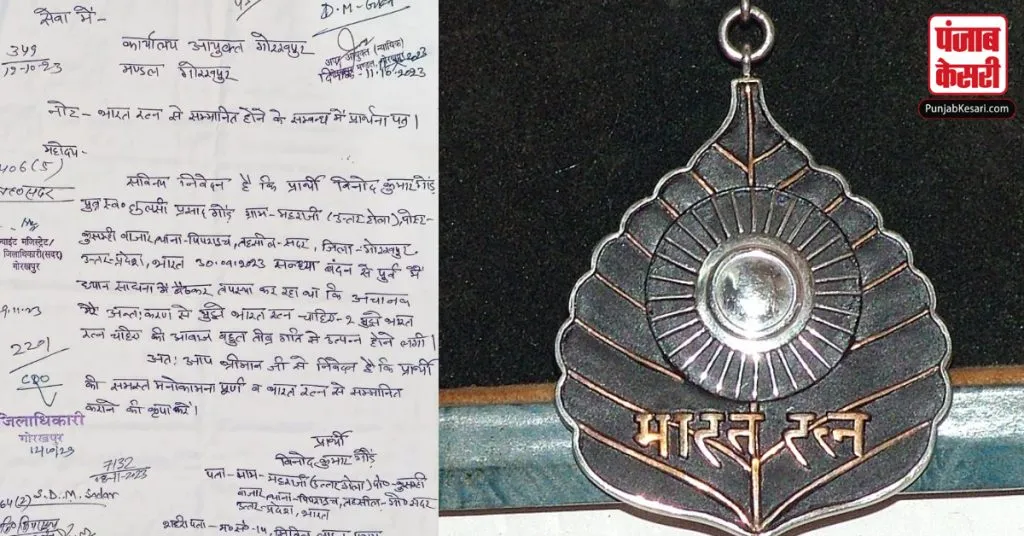 सेवा में-
D.M-
349
12-10-23
कार्यालय आयुक्त गोरखपुर
मण्डल गोरखपुर
अपर आयुक्त (न्यायिक)
दिनांक-11.10.2023
नोट- भारत रत्न से सम्मानित होने के सम्बन्ध में प्रार्थना पत्र।
महोदय-
406(5)
सविनय निवेदन है कि प्रार्थी विनोद कुमार गौंड़
पुत्र स्व० तुलसी प्रसाद गौंड़ ग्राम-महराजी (उत्तर टोला), पोस्ट-
कुसम्ही बाजार, थाना-पिपराइच, तहसील-सदर, जिला-गोरखपुर
उत्तर-प्रदेश, भारत 30.09.2023 सन्ध्या वंदन से पुर्व में
ध्यान साधना में बैठकर तपस्या कर रहा था कि अचानक
मेरे अन्तःकरण से मुझे भारत रत्न चाहिए-2 मुझे भारत
रत्न चाहिए की आवाज बहुत तीव्र गति से उत्पन्न होने लगी।
अतः आप श्रीमान जी से निवेदन है कि प्रार्थी
की समस्त मनोकामना पूर्ण व भारत रत्न से सम्मानित
कराने की कृपा करें।
ज्वाइंट मजिस्ट्रेट/
जिलाधिकारी (सदर)
गोरखपुर
2201
CDO
जिलाधिकारी
गोरखपुर
प्रार्थी
विनोद कुमार गौंड़
7132
पता-ग्राम-महराजी (उत्तर टोला) पो०-कुसम्ही
बाजार, थाना-पिपराइच, तहसील-गो० सदर
उत्तर-प्रदेश, भारत
64(2) S.D.M. Sadar
भारत रत्न
पंजाब
केसरी
PunjabKesari.com